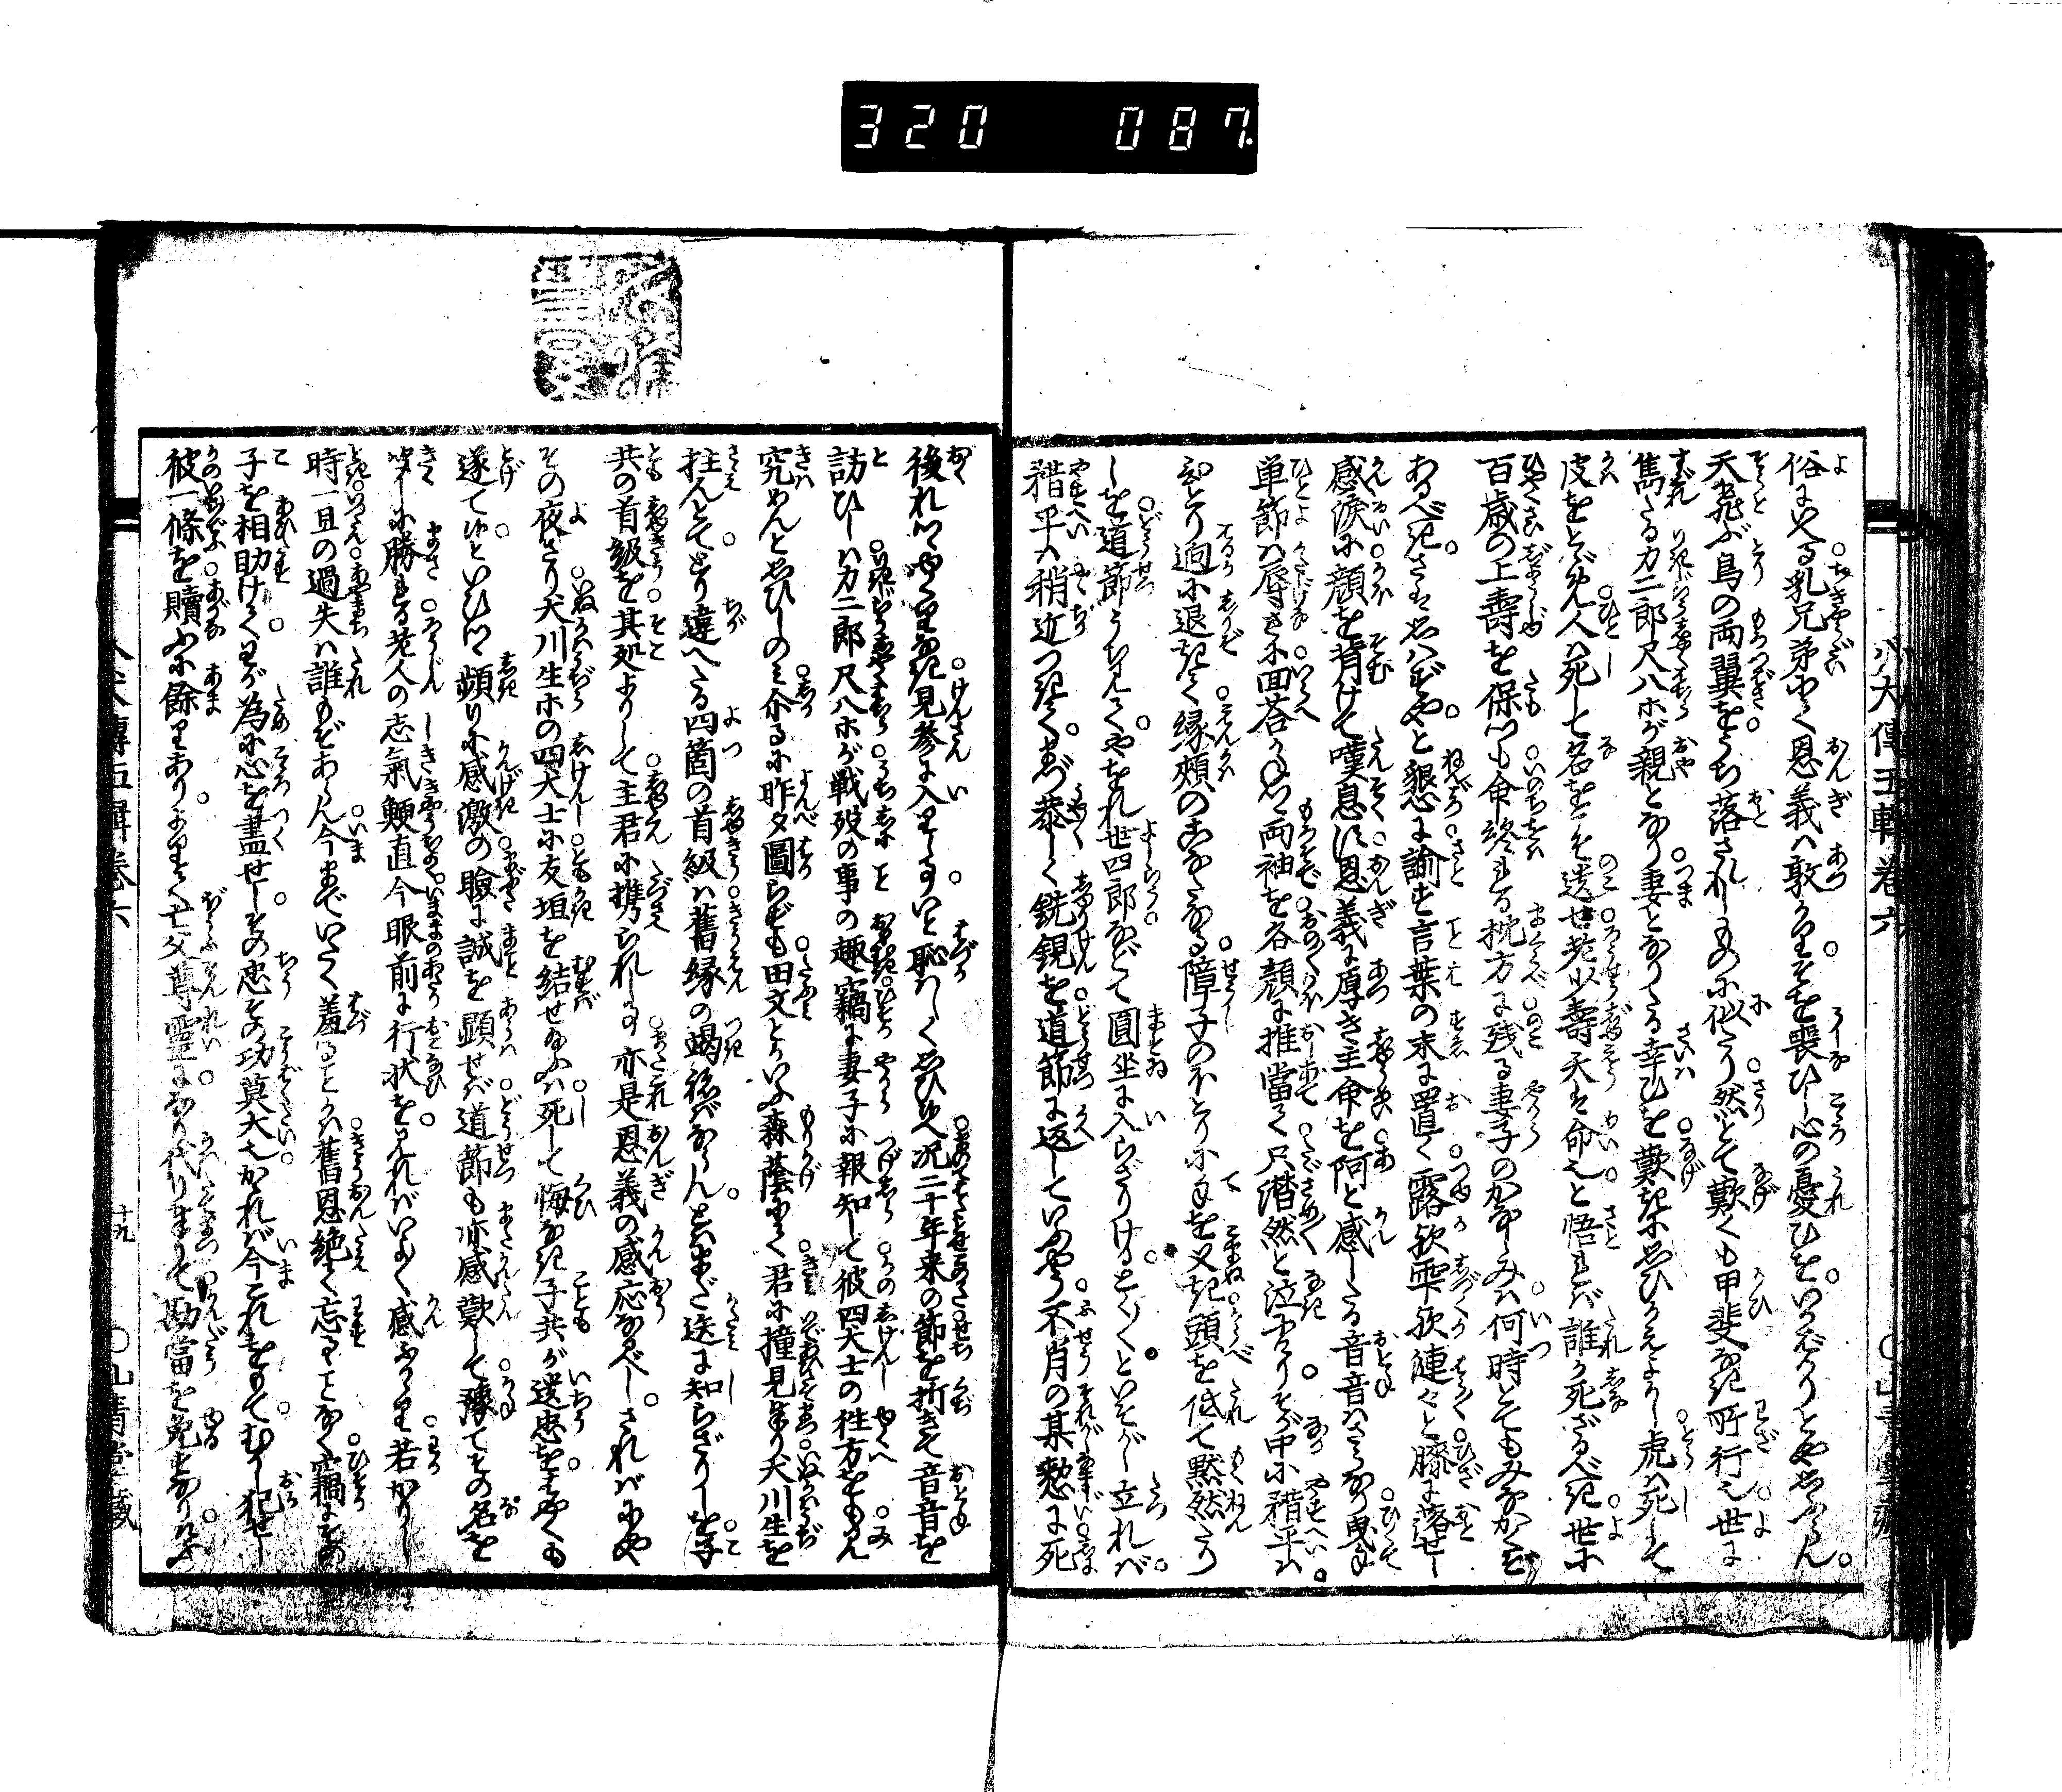 320 087
八犬傳五輯卷六
俗にいふ乳兄弟にて恩義は敦かりそを喪ひし心の憂ひをいかばかりとやおもふらん。
天飛ぶ鳥の両翼をうち落されしものに似たり然ばとて歎くも甲斐なき所行也世に
雋たる力二郎尺八ホが親となり妻となりたる幸ひを歎きにおもひかえよかし虎は死して
皮をとゞめ人は死して名をこそ遺せ老少壽夭は命也と悟れば誰か死ざるべき世に
百歳の上壽を保つも命終れる枕方に残る妻子のかなしみは何時とてもみなかくぞ
あるべきさはおもはずやと懇に諭す言葉の末に置く露歟雫歟漣々と膝に落せし
感涙に顔を背けて嘆息す恩義に厚き主命を阿と感じたる音音はさらなり曳手
単節は辱さに回荅かねつゝ両袖を各顔に推當て只潸然と泣にけりそが中に𥡴平は
ひとり逈に退きて縁頬のこなたなる障子のほとりに手を叉き頭を低て黙然たり
しを道節うち見てやをれ世四郎などて圓坐に入らざりけるとく〳〵といそがし立れば
𥡴平は稍近つきてまづ恭しく銑鋧を道節に返していふやう不肖の某愸に死
後れつゝやうやくなき見参に入りまつるいと恥かしくおもひぬ况二十年来の節を折きて音音を
訪ひしは力二郎尺八ホが戦歿の事の趣竊に妻子に報知して彼四犬士の徃方をも見
究めんとおもひしのみ介るに昨夕圖らずも田文とかいふ森蔭にて君に撞見まつり犬川生を
拄んとてとり違へたる四箇の首級は舊縁の竭ねばならんと六まだ送に知らざりしを子
共の首級を其処よりして主君に携られしも亦是恩義の感応なるべしさればにや
その夜さり犬川生ホの四犬士に友垣を結せ給ふは死して悔なき子共が遺忠をはやくも
遂て候といひつゝ頻りに感激の瞼に誠を顕せば道節も亦感歎して豫てその名を
聞しに勝れる老人の志氣鯁直今眼前に行状を見ればいよ〳〵感ふかかり若かりし
時一旦の過失は誰もぞあらん今までいたく羞ることかは舊恩絶て忘るゝことなく竊にその
子を相助けてわが為に心を盡せしその忠その功莫大也かゝれば今これをもてむかし犯せし
彼一條を贖ふに餘りありよりて亡父尊靈になり代りまつりて勘當を免すなりけふ
八犬傳五輯卷六
十九